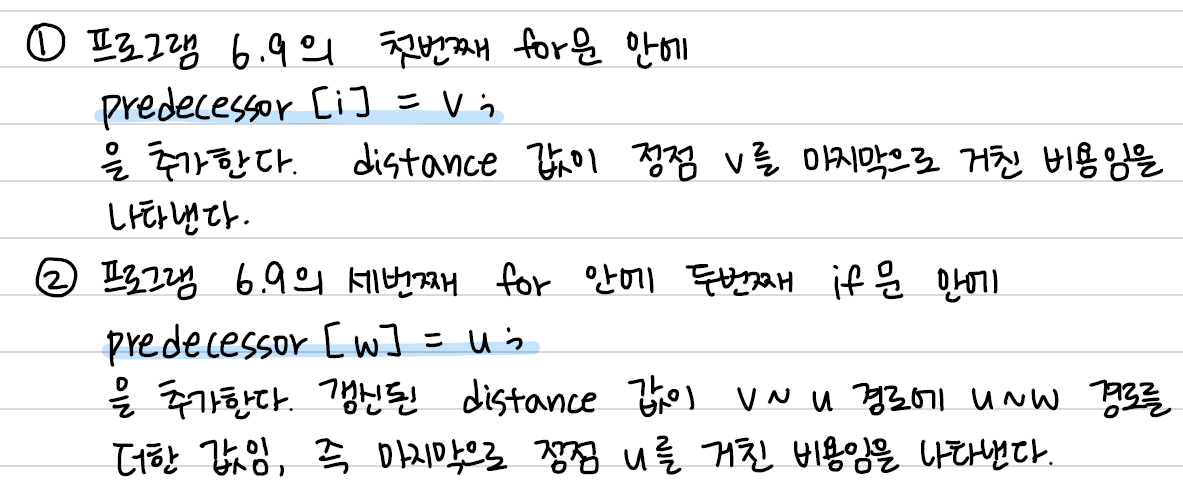 ① 프로그램 6.9의 첫번째 for문 안에
predecessor [i] = v ;
을 추가한다. distance 값이 정점 v를 마지막으로 거친 비용임을
나타낸다.
② 프로그램 6.9의 세번째 for 안에 두번째 if문 안에
predecessor [w] = u ;
을 추가한다. 갱신된 distance 값이 v~u 경로에 u~w 경로를
더한 값임, 즉 마지막으로 정점 u를 거친 비용임을 나타낸다.